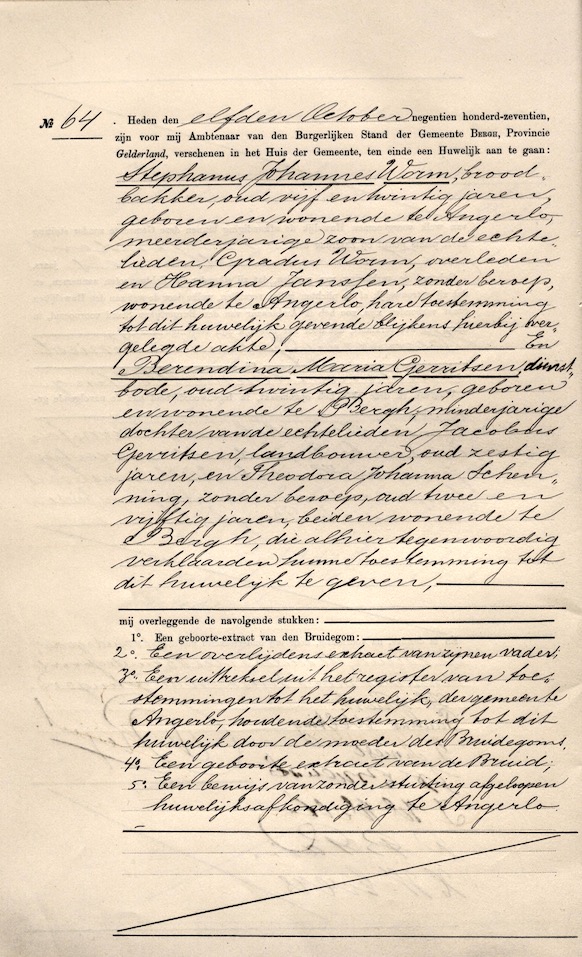 № 64. Heden den elfden October negentien honderd-zeventien,
zijn voor mij Ambtenaar van den Burgerlijken Stand der Gemeente BERGH, Provincie
Gelderland, verschenen in het Huis der Gemeente, ten einde een Huwelijk aan te gaan:
Stephanus Johannes Worm, brood-
bakker, oud vijf en twintig jaren,
geboren en wonende te Angerlo,
meerderjarige zoon van de echte-
lieden Gradus Worm, overleden
en Hanna Janssen, zonder beroep,
wonende te Angerlo, hare toestemming
tot dit huwelijk gevende blijkens hierbij over-
gelegde akte, En
Berendina Maria Gerritsen, dienst-
bode, oud twintig jaren, geboren
en wonende te Bergh, minderjarige
dochter van de echtelieden Jacobus
Gerritsen, landbouwer, oud zestig
jaren, en Theodora Johanna Schen-
ning, zonder beroep, oud twee en
vijftig jaren, beiden wonende te
Bergh, die alhier tegenwoordig
verklaarden hunne toestemming tot
dit huwelijk te geven,
mij overleggende de navolgende stukken:
1°. Een geboorte-extract van den Bruidegom:
2°. Een overlijdens extract van zijnen vader;
3°. Een uittreksel uit het register van toe-
stemmingen tot het huwelijk, der gemeente
Angerlo, houdende toestemming tot dit
huwelijk door de moeder des Bruidegoms.
4°. Een geboorte extract van de Bruid;
5°. Een bewijs van zonder stuiting afgeloopen
huwelijksafkondiging te Angerlo.